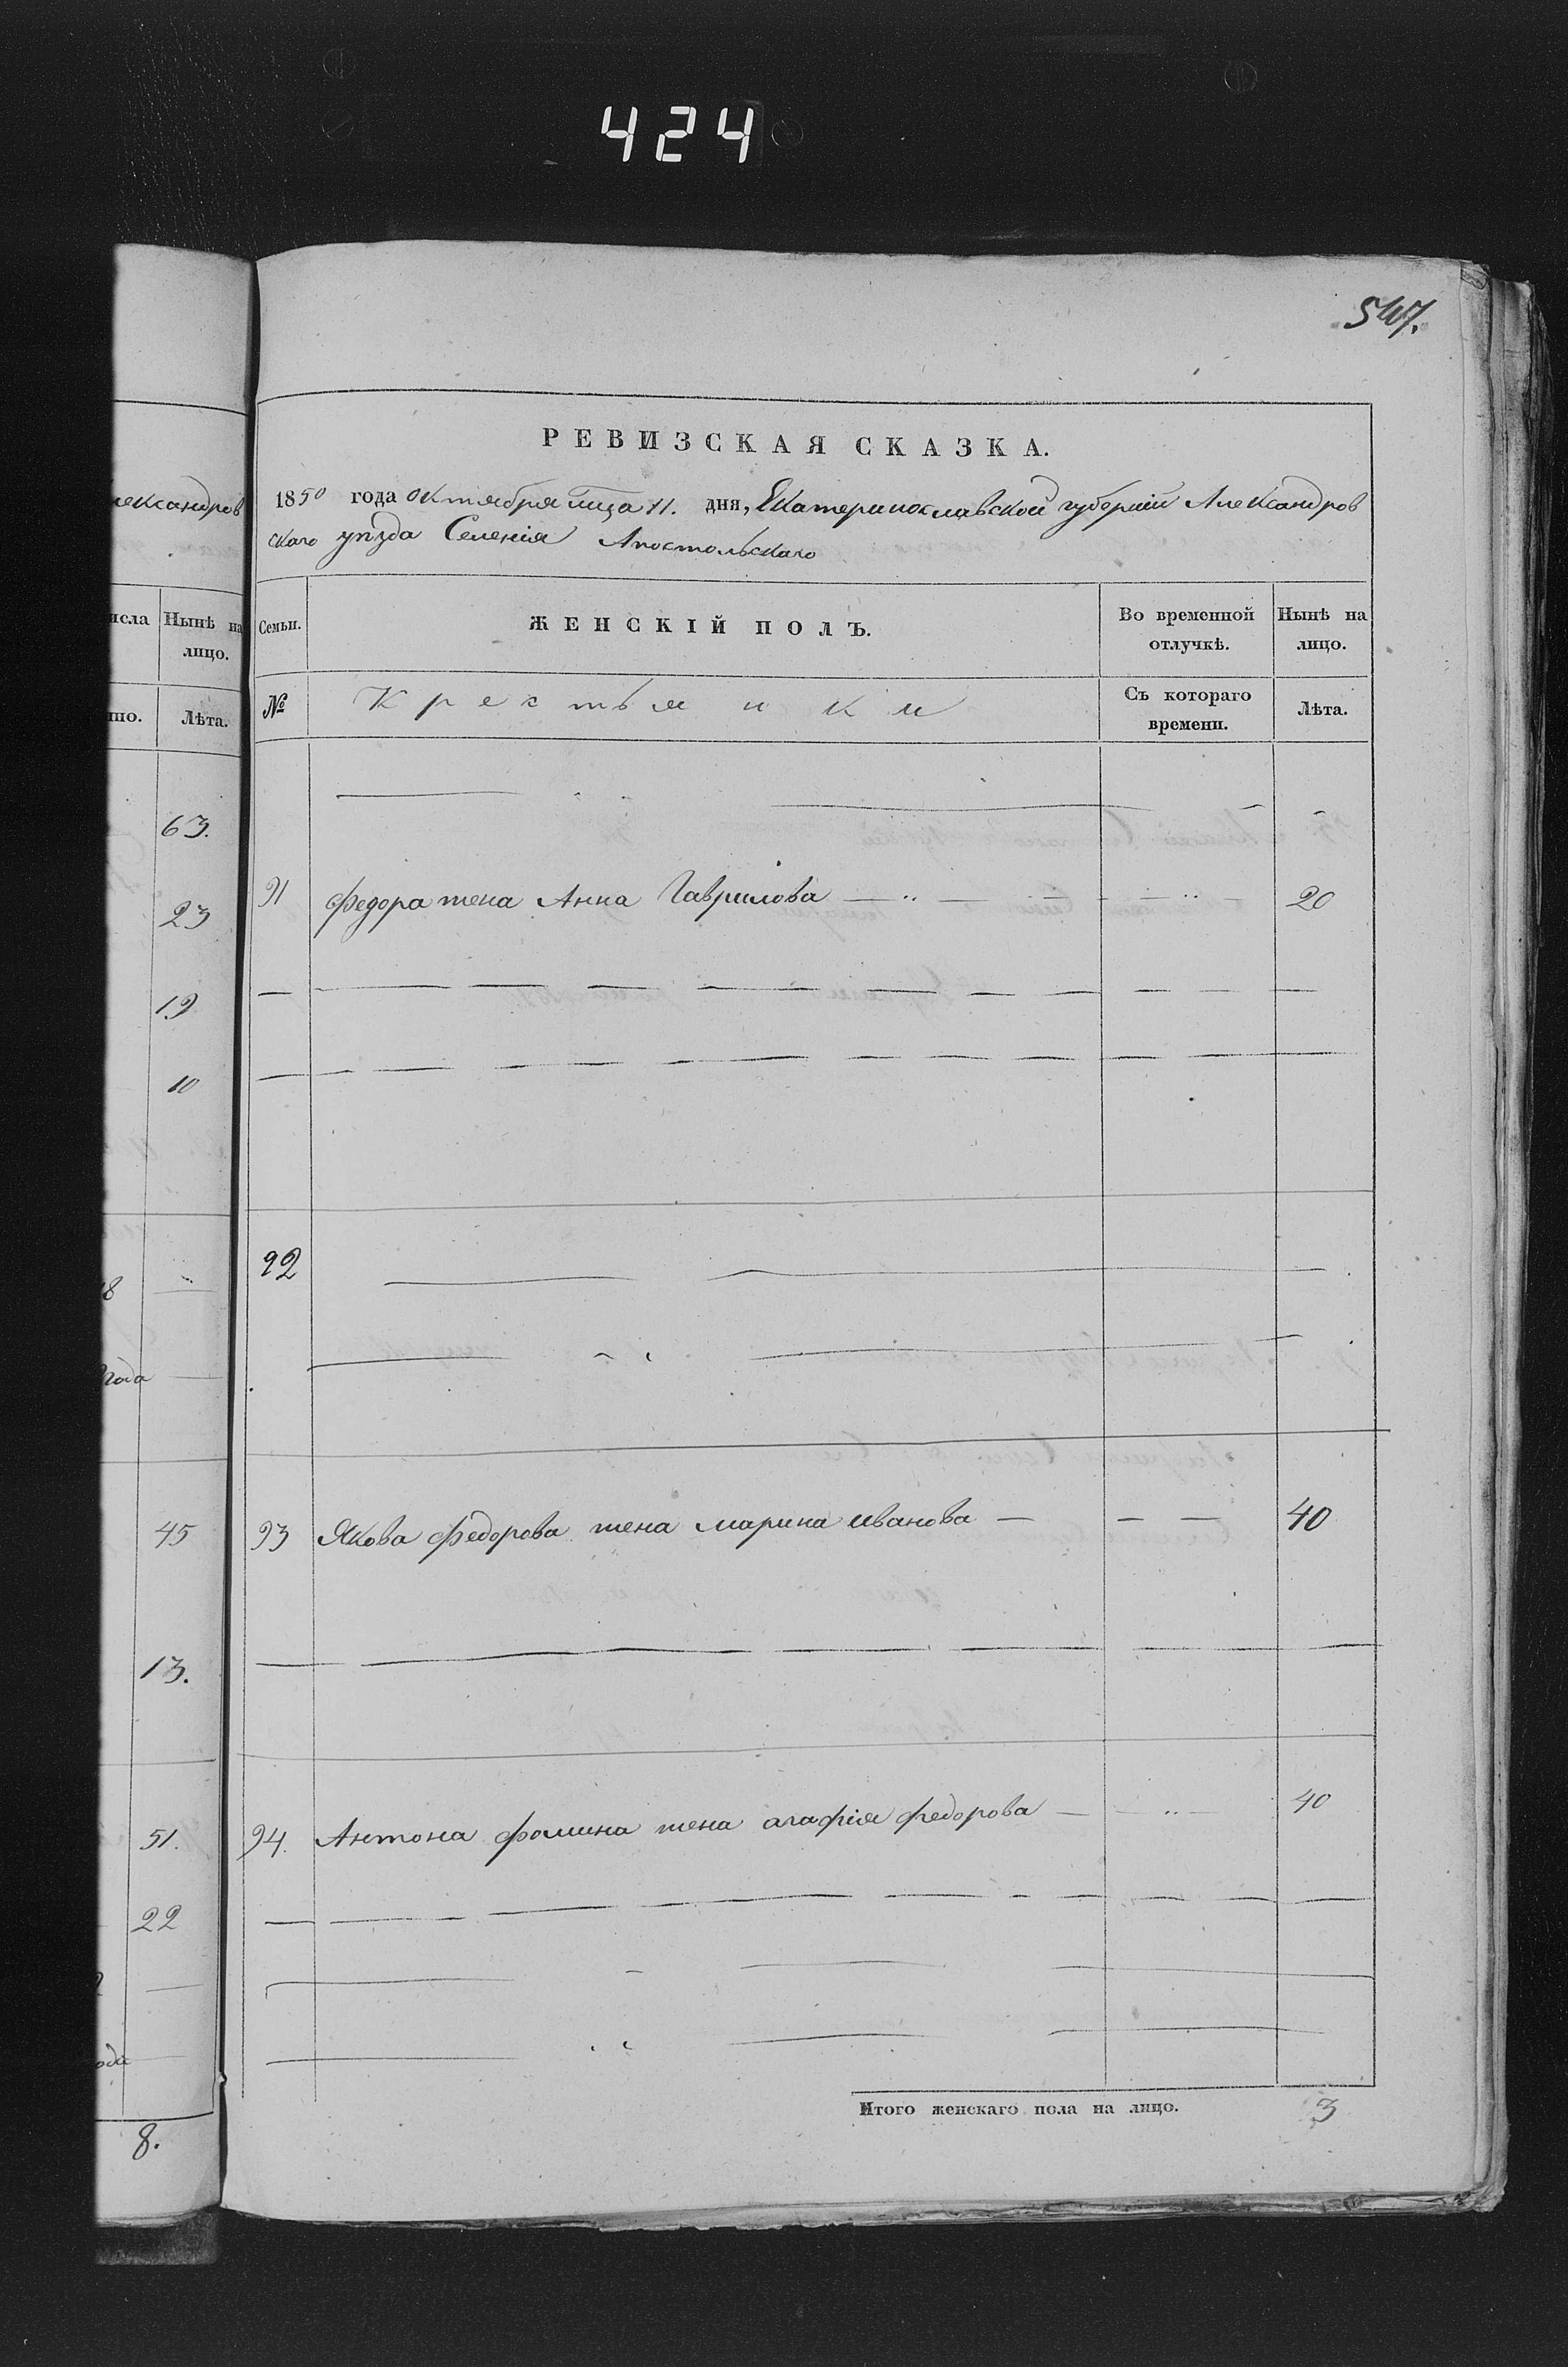 424
547.
лександров
исла Нынѣ на
лицо.
Лѣта.
63.
23
19
10
18
года
45
13.
51.
22
8.
РЕВИЗСКАЯ СКАЗКА.
1850 года октября мца 11. дня, Екатеринославской губернїи Александров
скаго уѣзда Селенія Апостольскаго
Семьи. ЖЕНСКІЙ ПОЛЪ. Во временной отлучкѣ. Нынѣ на лицо.
№ Крестьянки Съ котораго времени. Лѣта.
91 Федора жена Анна Гаврилова — 20
92
93 Якова Федорова жена марина иванова — 40
94. Антона фомина жена агафія федорова — 40
Итого женскаго пола на лицо. 3